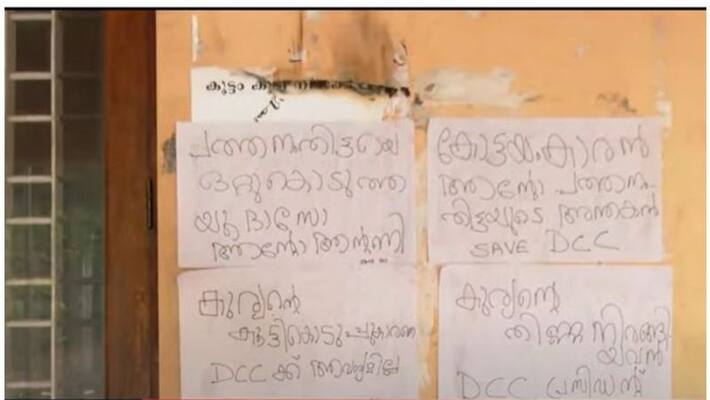 കൂട്ടം കൂടി
പത്തനംതിട്ടയെ
ഒറ്റുകൊടുത്ത
യൂദാസോ
ആന്റോ ആന്റണി
കോട്ടയംകാരൻ
ആന്റോ പത്തനം-
തിട്ടയുടെ അന്തകൻ
SAVE DCC
കുര്യന്റെ
കൂട്ടികൊടുപ്പുകാരനെ
DCC ക്ക് ആവശ്യമില്ല
കുര്യന്റെ
തിണ്ണ നിരങ്ങി
യവൻ
DCC പ്രസിഡന്റ്